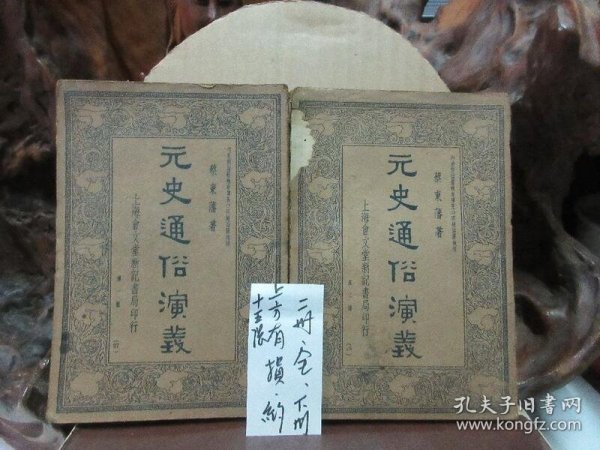 蔡東藩著
元史通俗演義
上海會文堂新記書局印行
蔡東藩著
元史通俗演義
上海會文堂新記書局印行
二冊、全、下冊
上方有損、約
十五張
孔夫子旧书网
www.kongfz.com